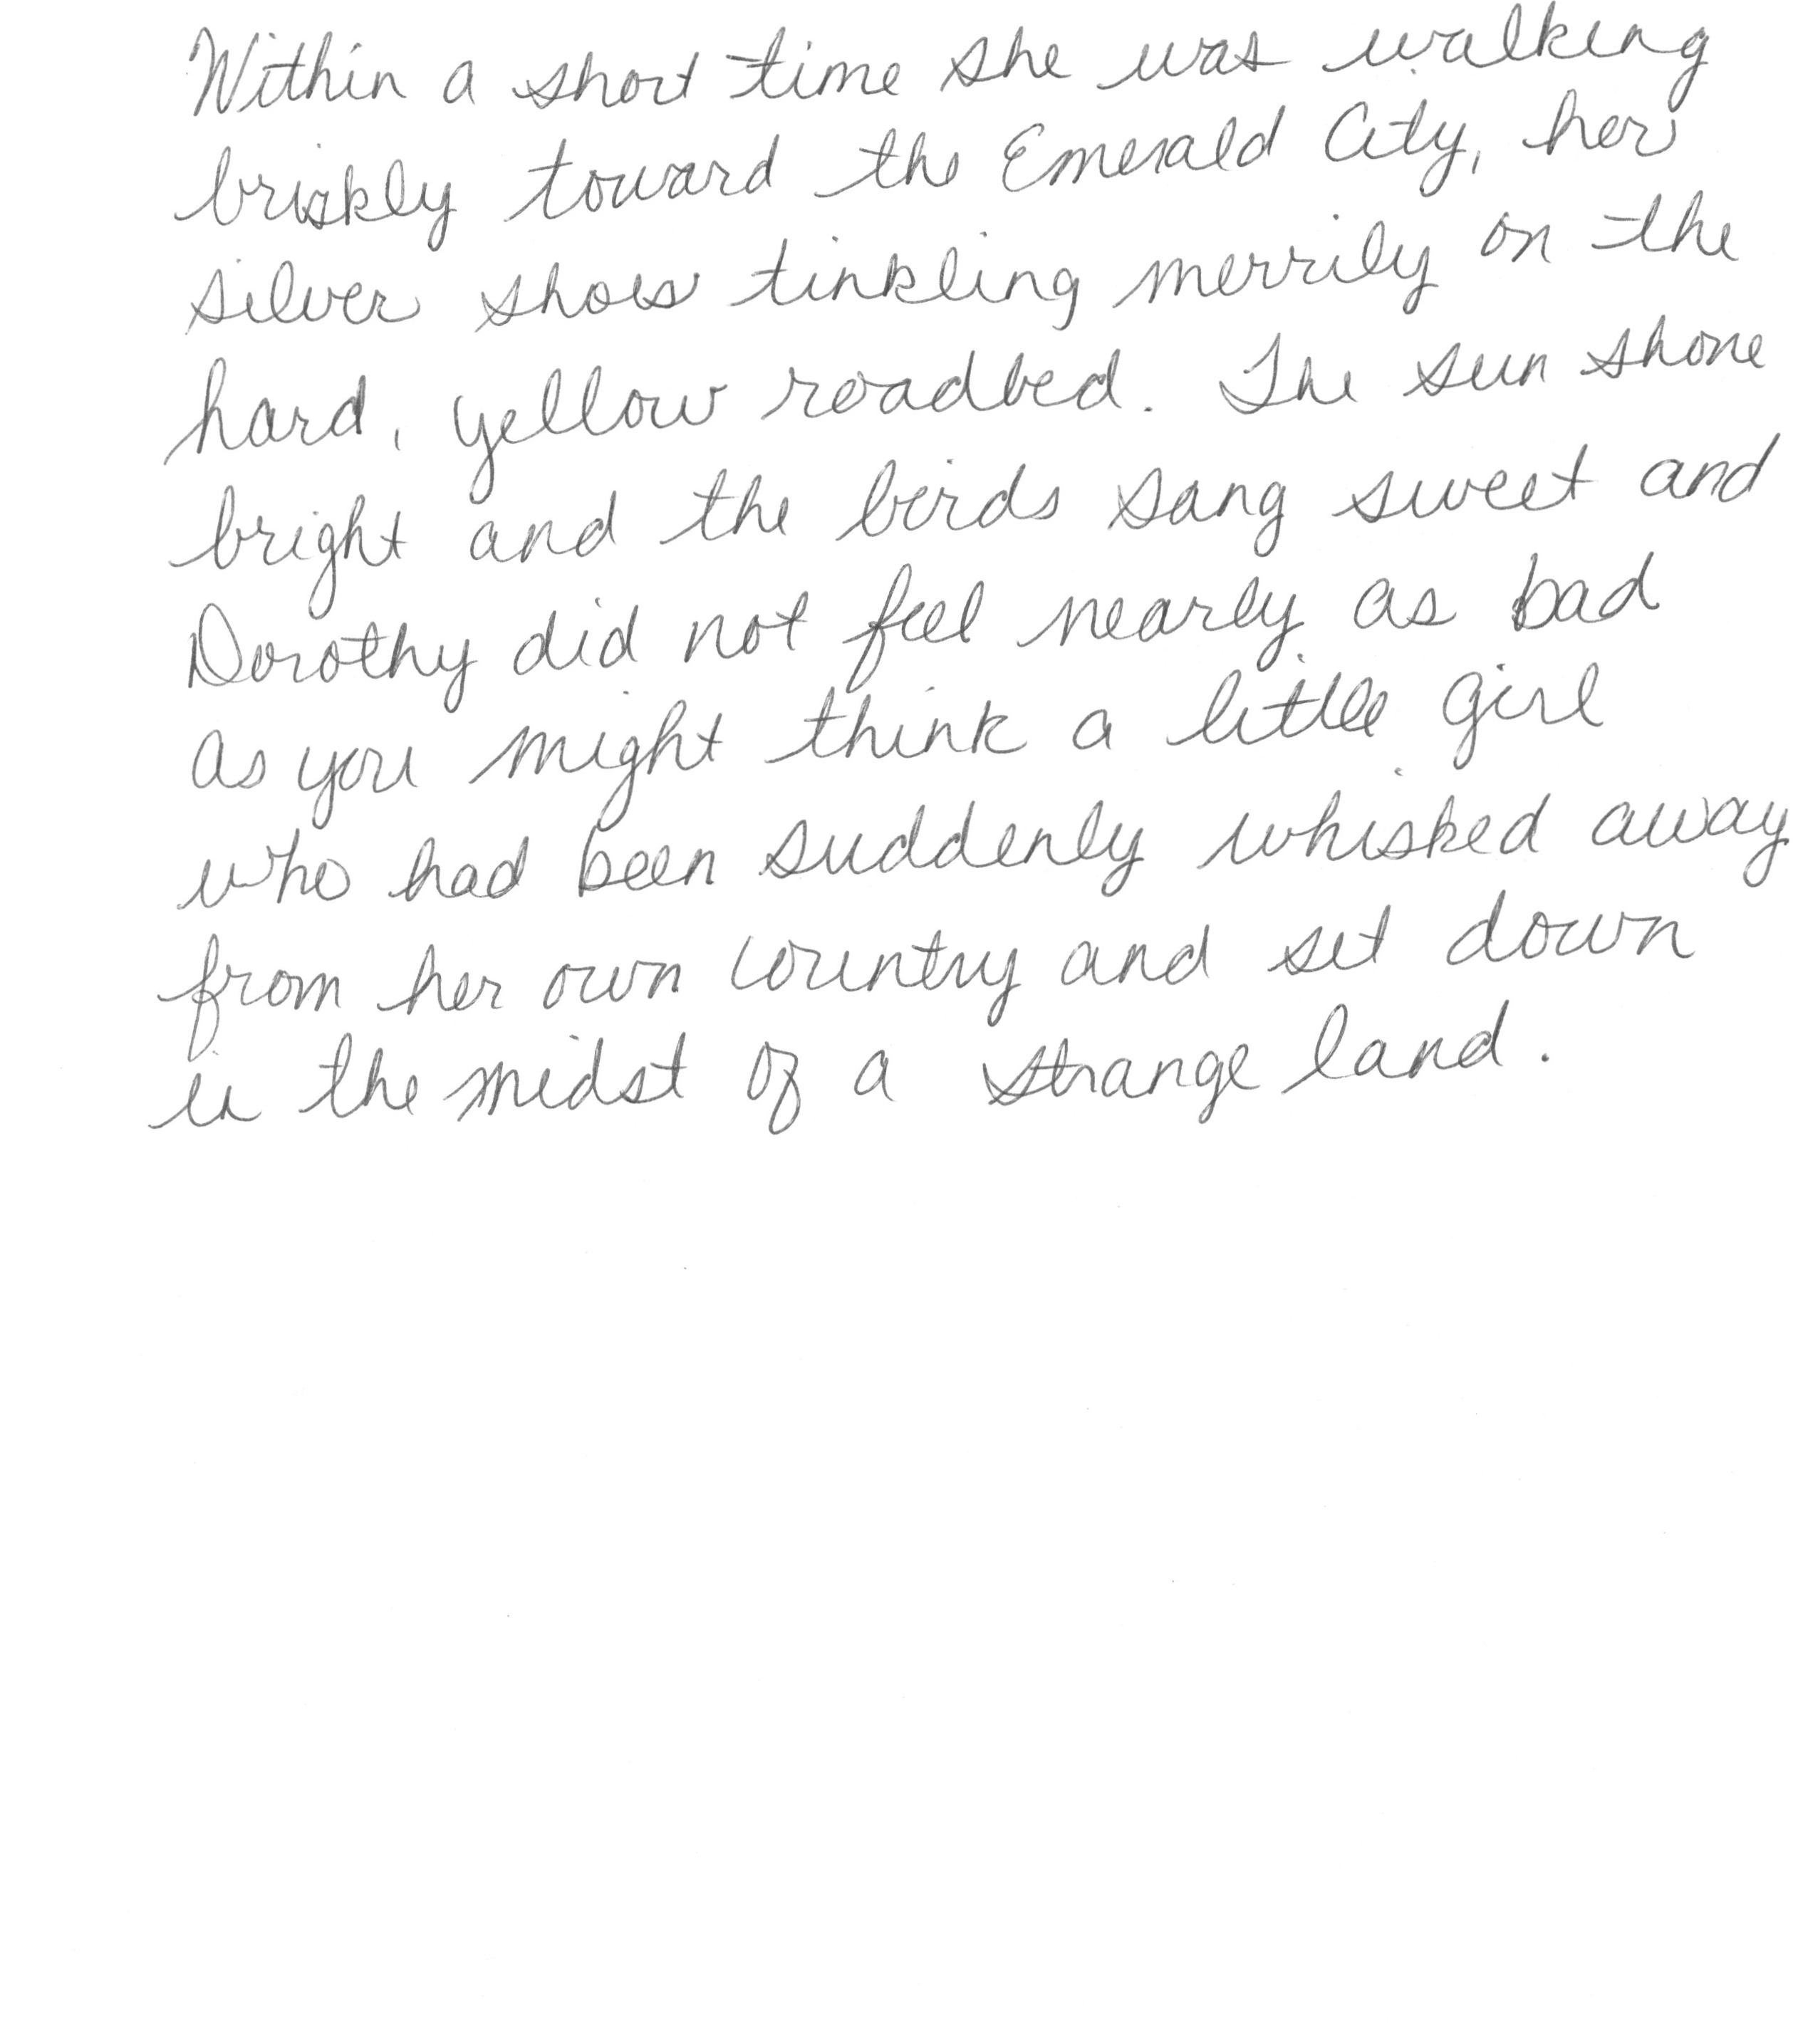 Within a short time she was walking
briskly toward the Emerald City, her
silver shoes tinkling merrily on the
hard, yellow roadbed. The sun shone
bright and the birds sang sweet and
Dorothy did not feel nearly as bad
as you might think a little girl
who had been suddenly whisked away
from her own country and set down
in the midst of a strange land.